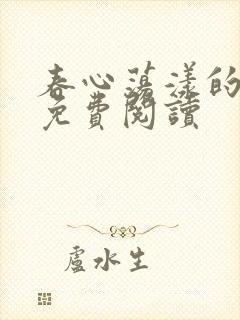 春心蕩漾的
免費閱讀
盧水生